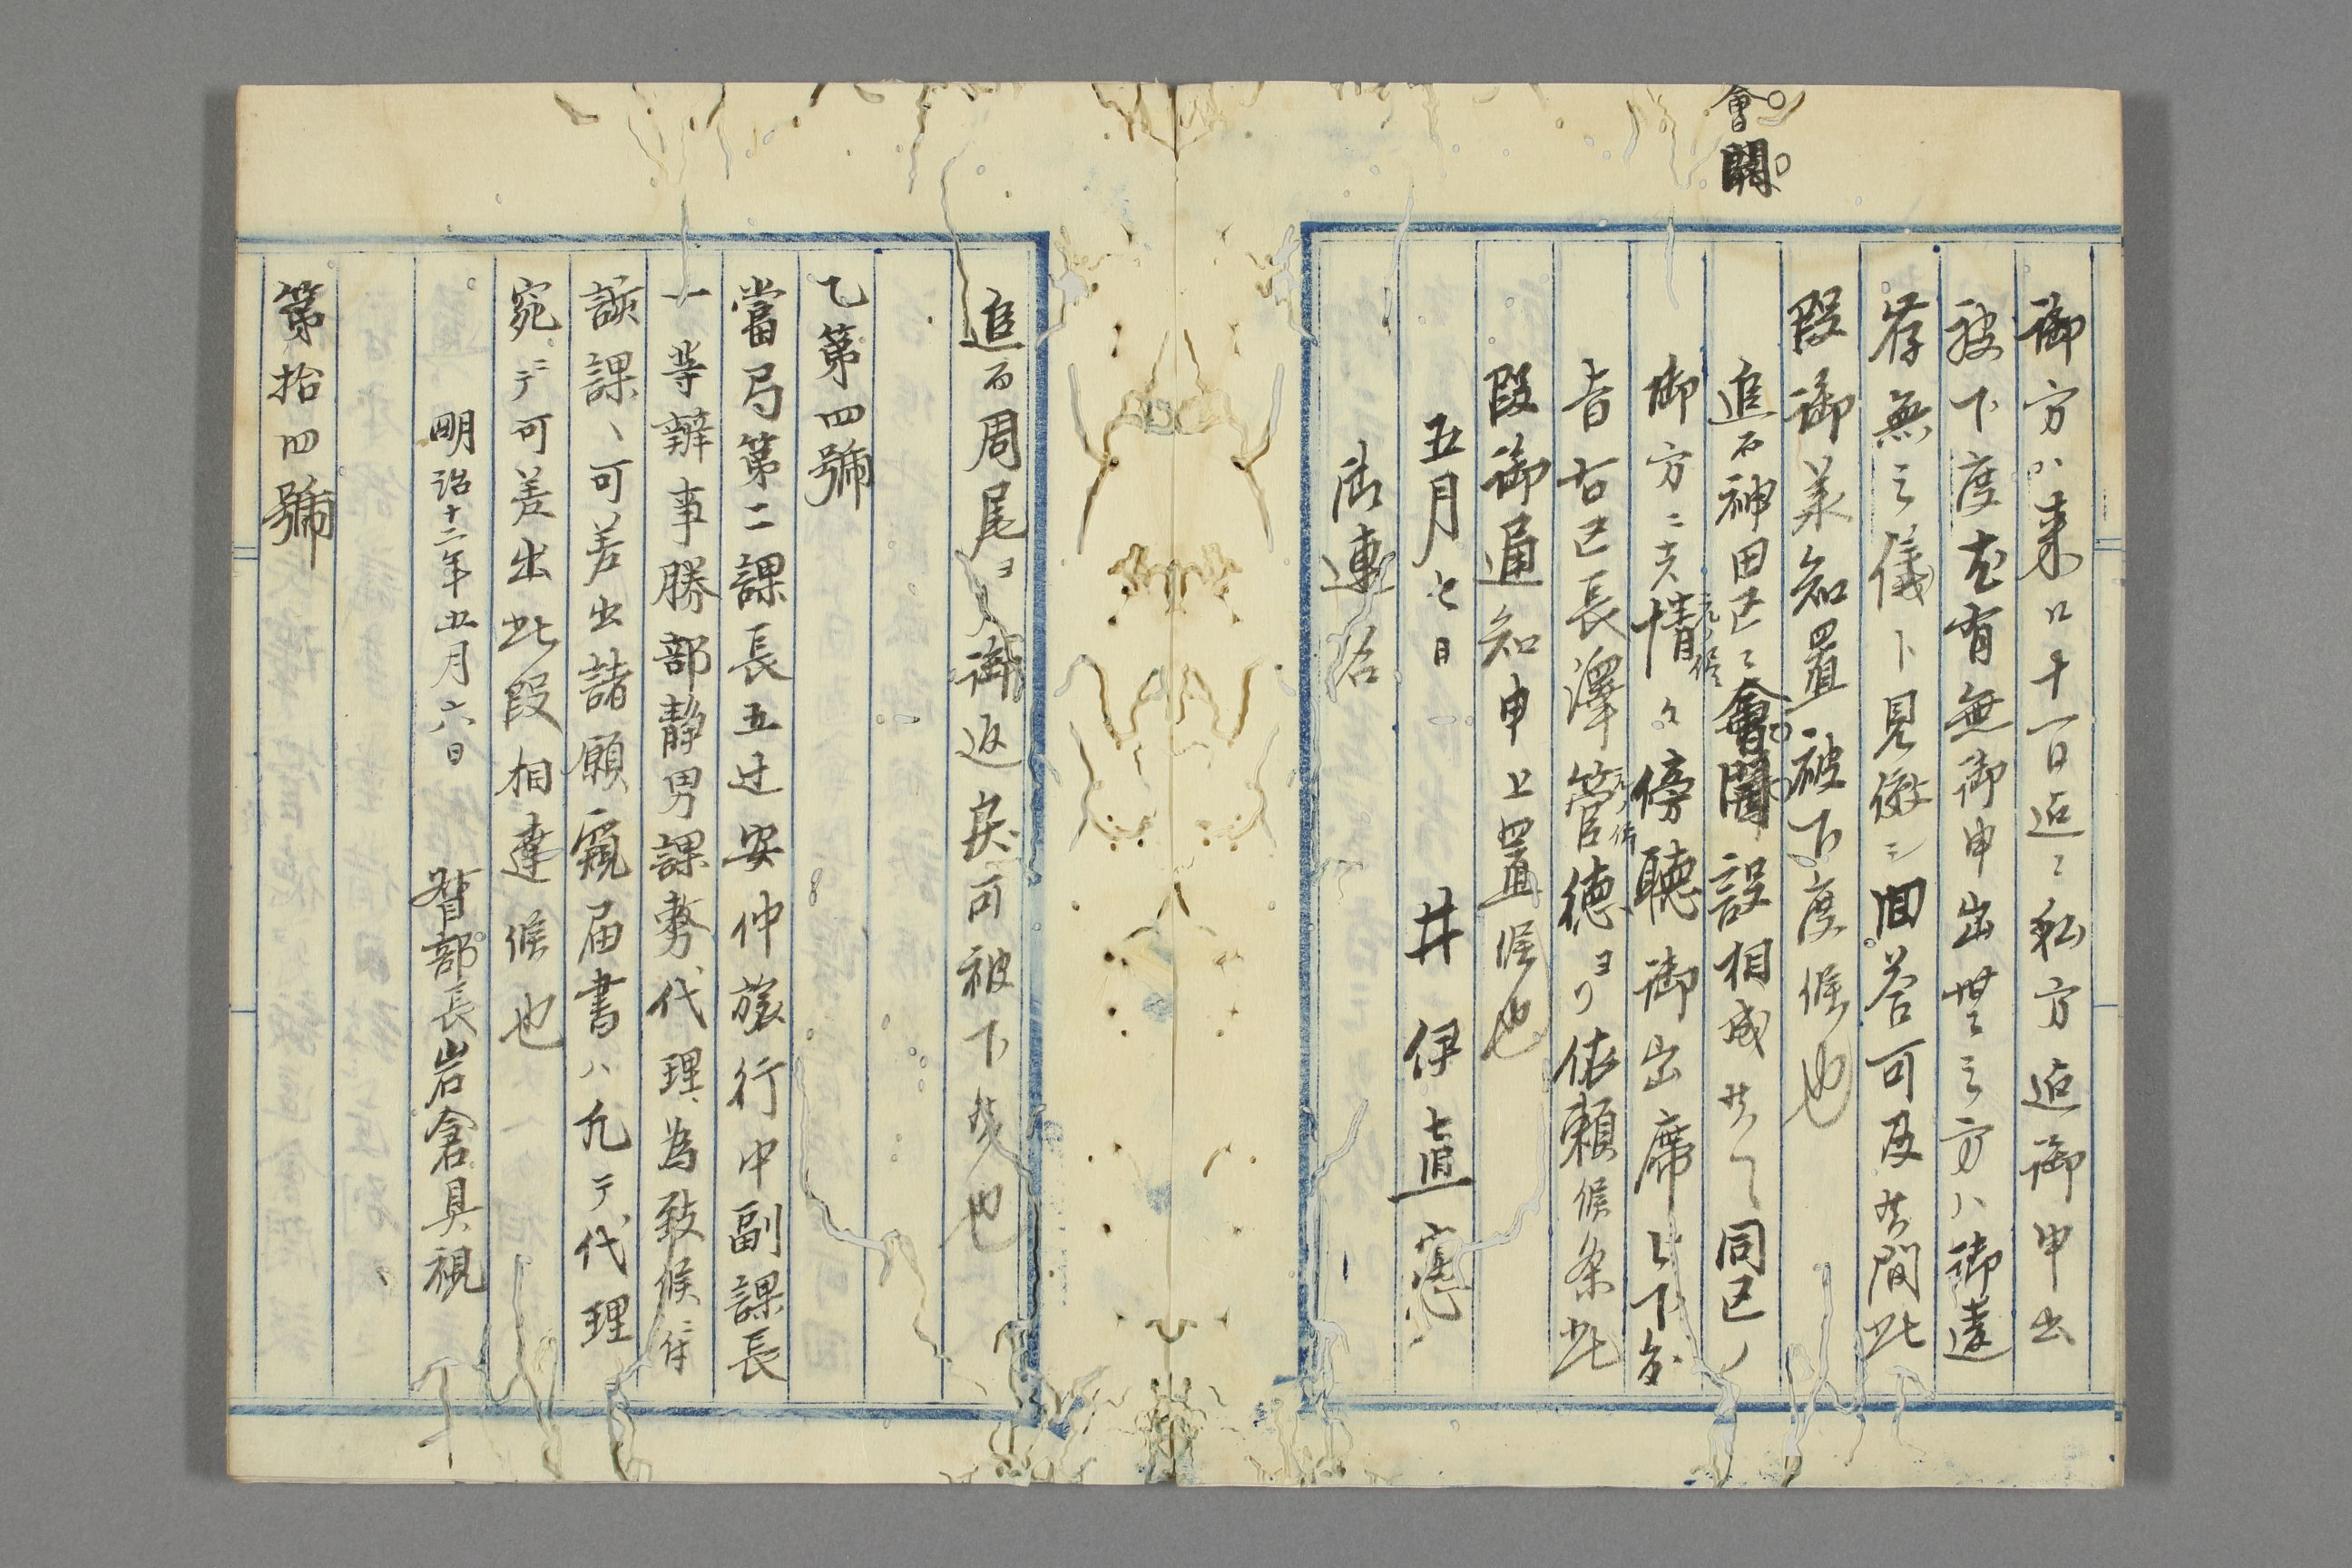 會
闘
御方ハ来ル十一日迄ニ私方迄御申出
被下度尤有無御申出無之方ハ御違
存無之儀ト見做シ回答可及其間此
段御羕知置被下度候也
追而神田区ニ會闘設相成其同区ノ
御方ニ情々傍聴御出席
旨右区長澤管徳ヨリ依頼候条此
段御通知申上置候也
五月七日 井伊直憲
御連名
追而周尾ヨリ御返戻可被下候也
乙第四號
當局第二課長五辻安仲旅行中副課長
一等辦事勝部静男課務代理為致候ニ付
該課ヘ可差出諸願窺届書ハ凡テ代理
宛ニテ可差出此段相達候也
明治十二年五月六日 督部長岩倉具視
第拾四號